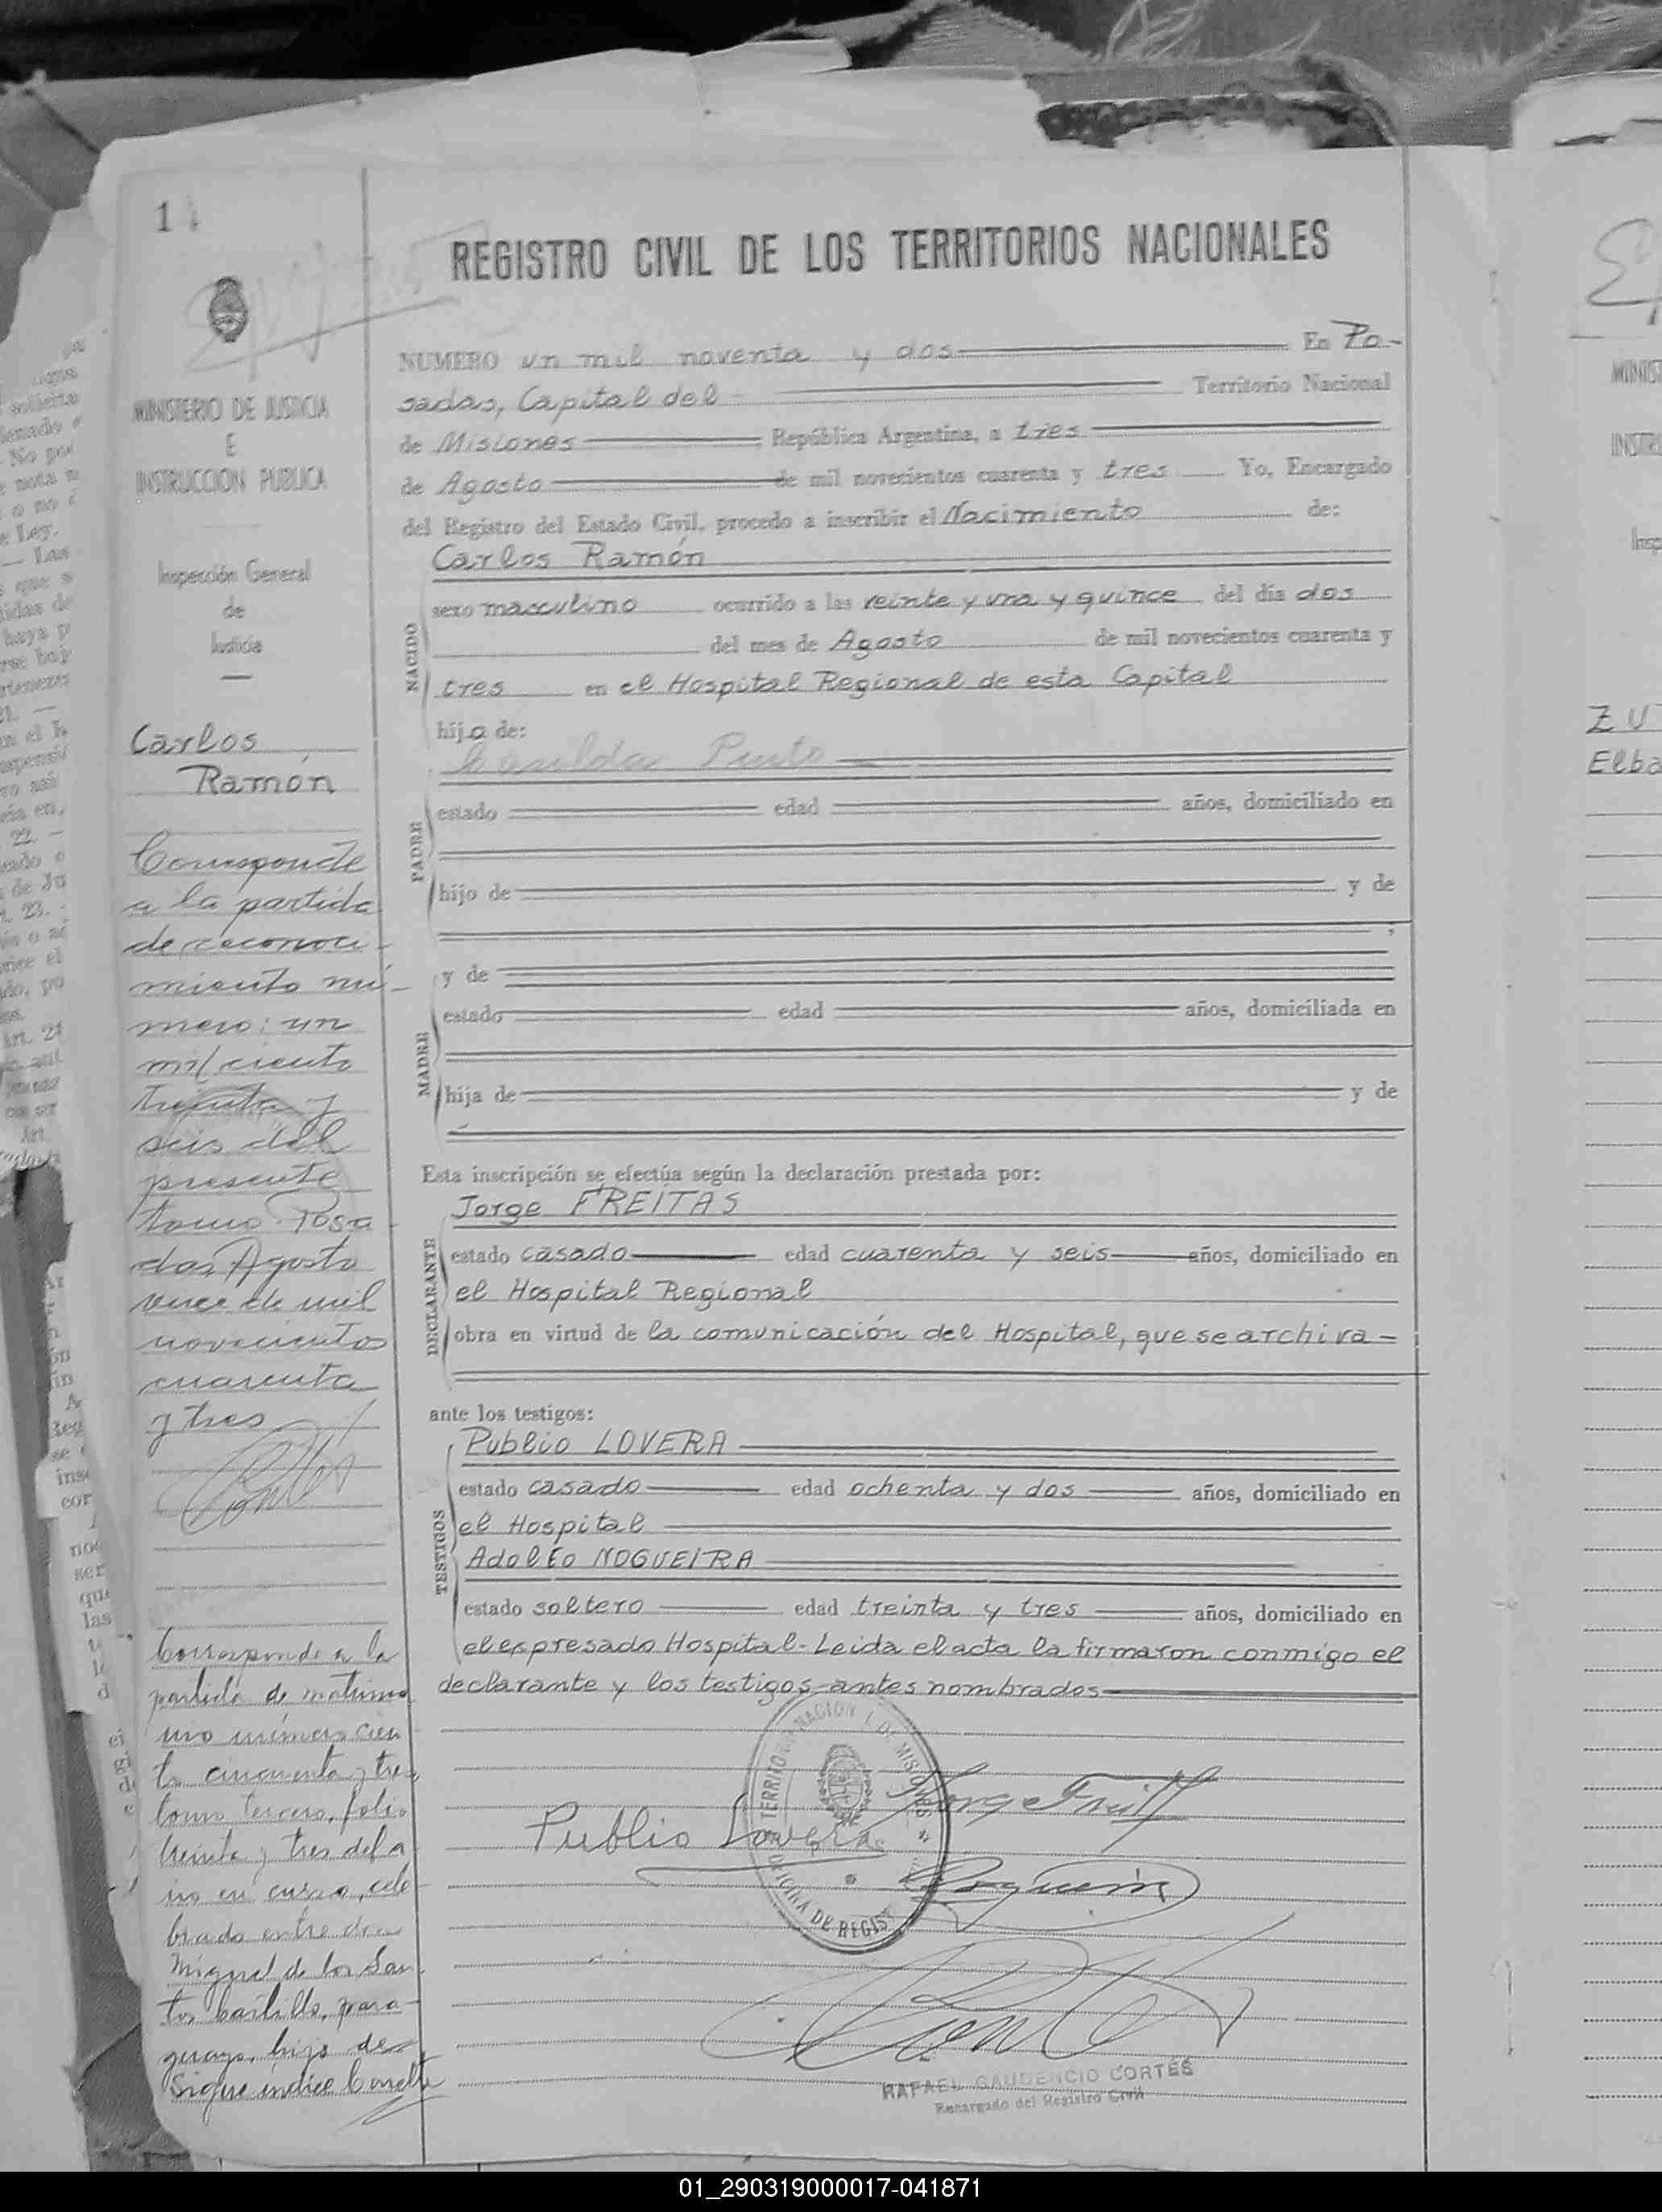 1
REGISTRO CIVIL DE LOS TERRITORIOS NACIONALES
MINISTERIO DE JUSTICIA
E
INSTRUCCION PUBLICA
Inspección General
de
Justicia
Carlos
Ramón
Corresponde
a la partida
de reconoci-
miento nú-
mero: un
mil ciento
treinta y
seis del
presente
tomo Posa
das, Agosto
once de mil
novecientos
cuarenta
y tres
Corresponde a la
partida de matrimo
nio número cien
to cincuenta y tres
tomo tercero, folio
treinta y tres del a
ño en curso, cele
brado entre don
Miguel de los San-
tos Castillo, para-
guayo, hijo de
Sigue índice
NUMERO un mil noventa y dos En Po-
sadas, Capital del Territorio Nacional
de Misiones, República Argentina, a tres
de Agosto de mil novecientos cuarenta y tres Yo, Encargado
del Registro del Estado Civil, procedo a inscribir el Nacimiento de:
NACIDO
Carlos Ramón
sexo masculino ocurrido a las veinte y una y quince del dia dos
del mes de Agosto de mil novecientos cuarenta y
tres en el Hospital Regional de esta Capital
hijo de:
PADRE
Casilda Pinto
estado edad años, domiciliado en
hijo de y de
;
MADRE
y de
estado edad años, domiciliada en
hija de y de
Esta inscripción se efectúa según la declaración prestada por:
DECLARANTE
Jorge FREITAS
estado casado edad cuarenta y seis años, domiciliado en
el Hospital Regional
obra en virtud de la comunicación del Hospital, que se archiva-
ante los testigos:
TESTIGOS
Publio LOVERA
estado casado edad ochenta y dos años, domiciliado en
el Hospital
Adolfo NOGUEIRA
estado soltero edad treinta y tres años, domiciliado en
el expresado Hospital-Leida el acta la firmaron conmigo el
declarante y los testigos antes nombrados
Publio Lovera
Jorge Freitas
Nogueira
OFICINA DE REGIST
RAFAEL GAUDENCIO CORTÉS
Encargado del Registro Civil
ZU
Elba
01_290319000017-041871